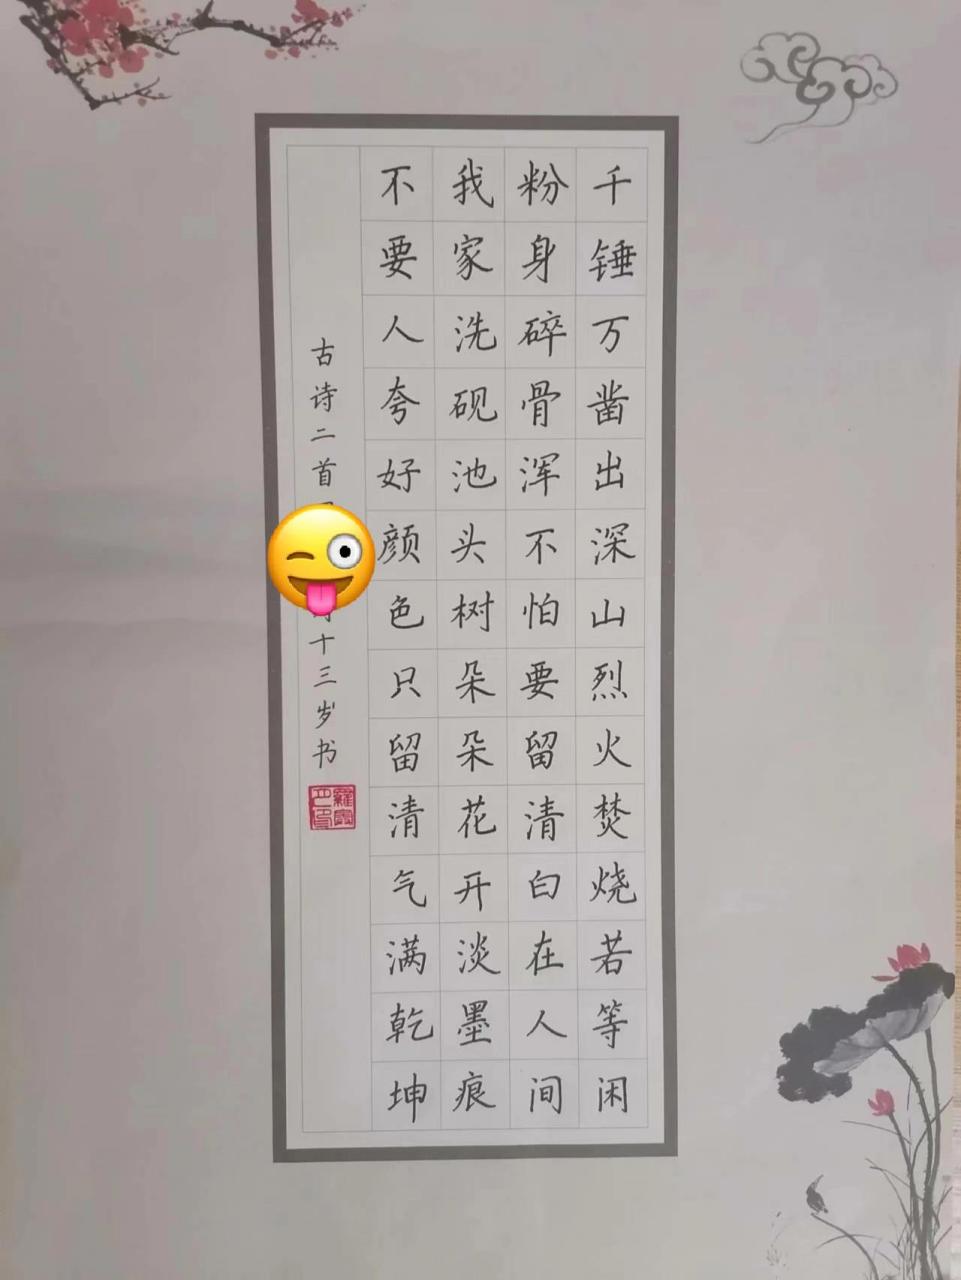 千锤万凿出深山烈火焚烧若等闲
粉身碎骨浑不怕要留清白在人间
我家洗砚池头树朵朵花开淡墨痕
不要人夸好颜色只留清气满乾坤
古诗二首
十三岁书